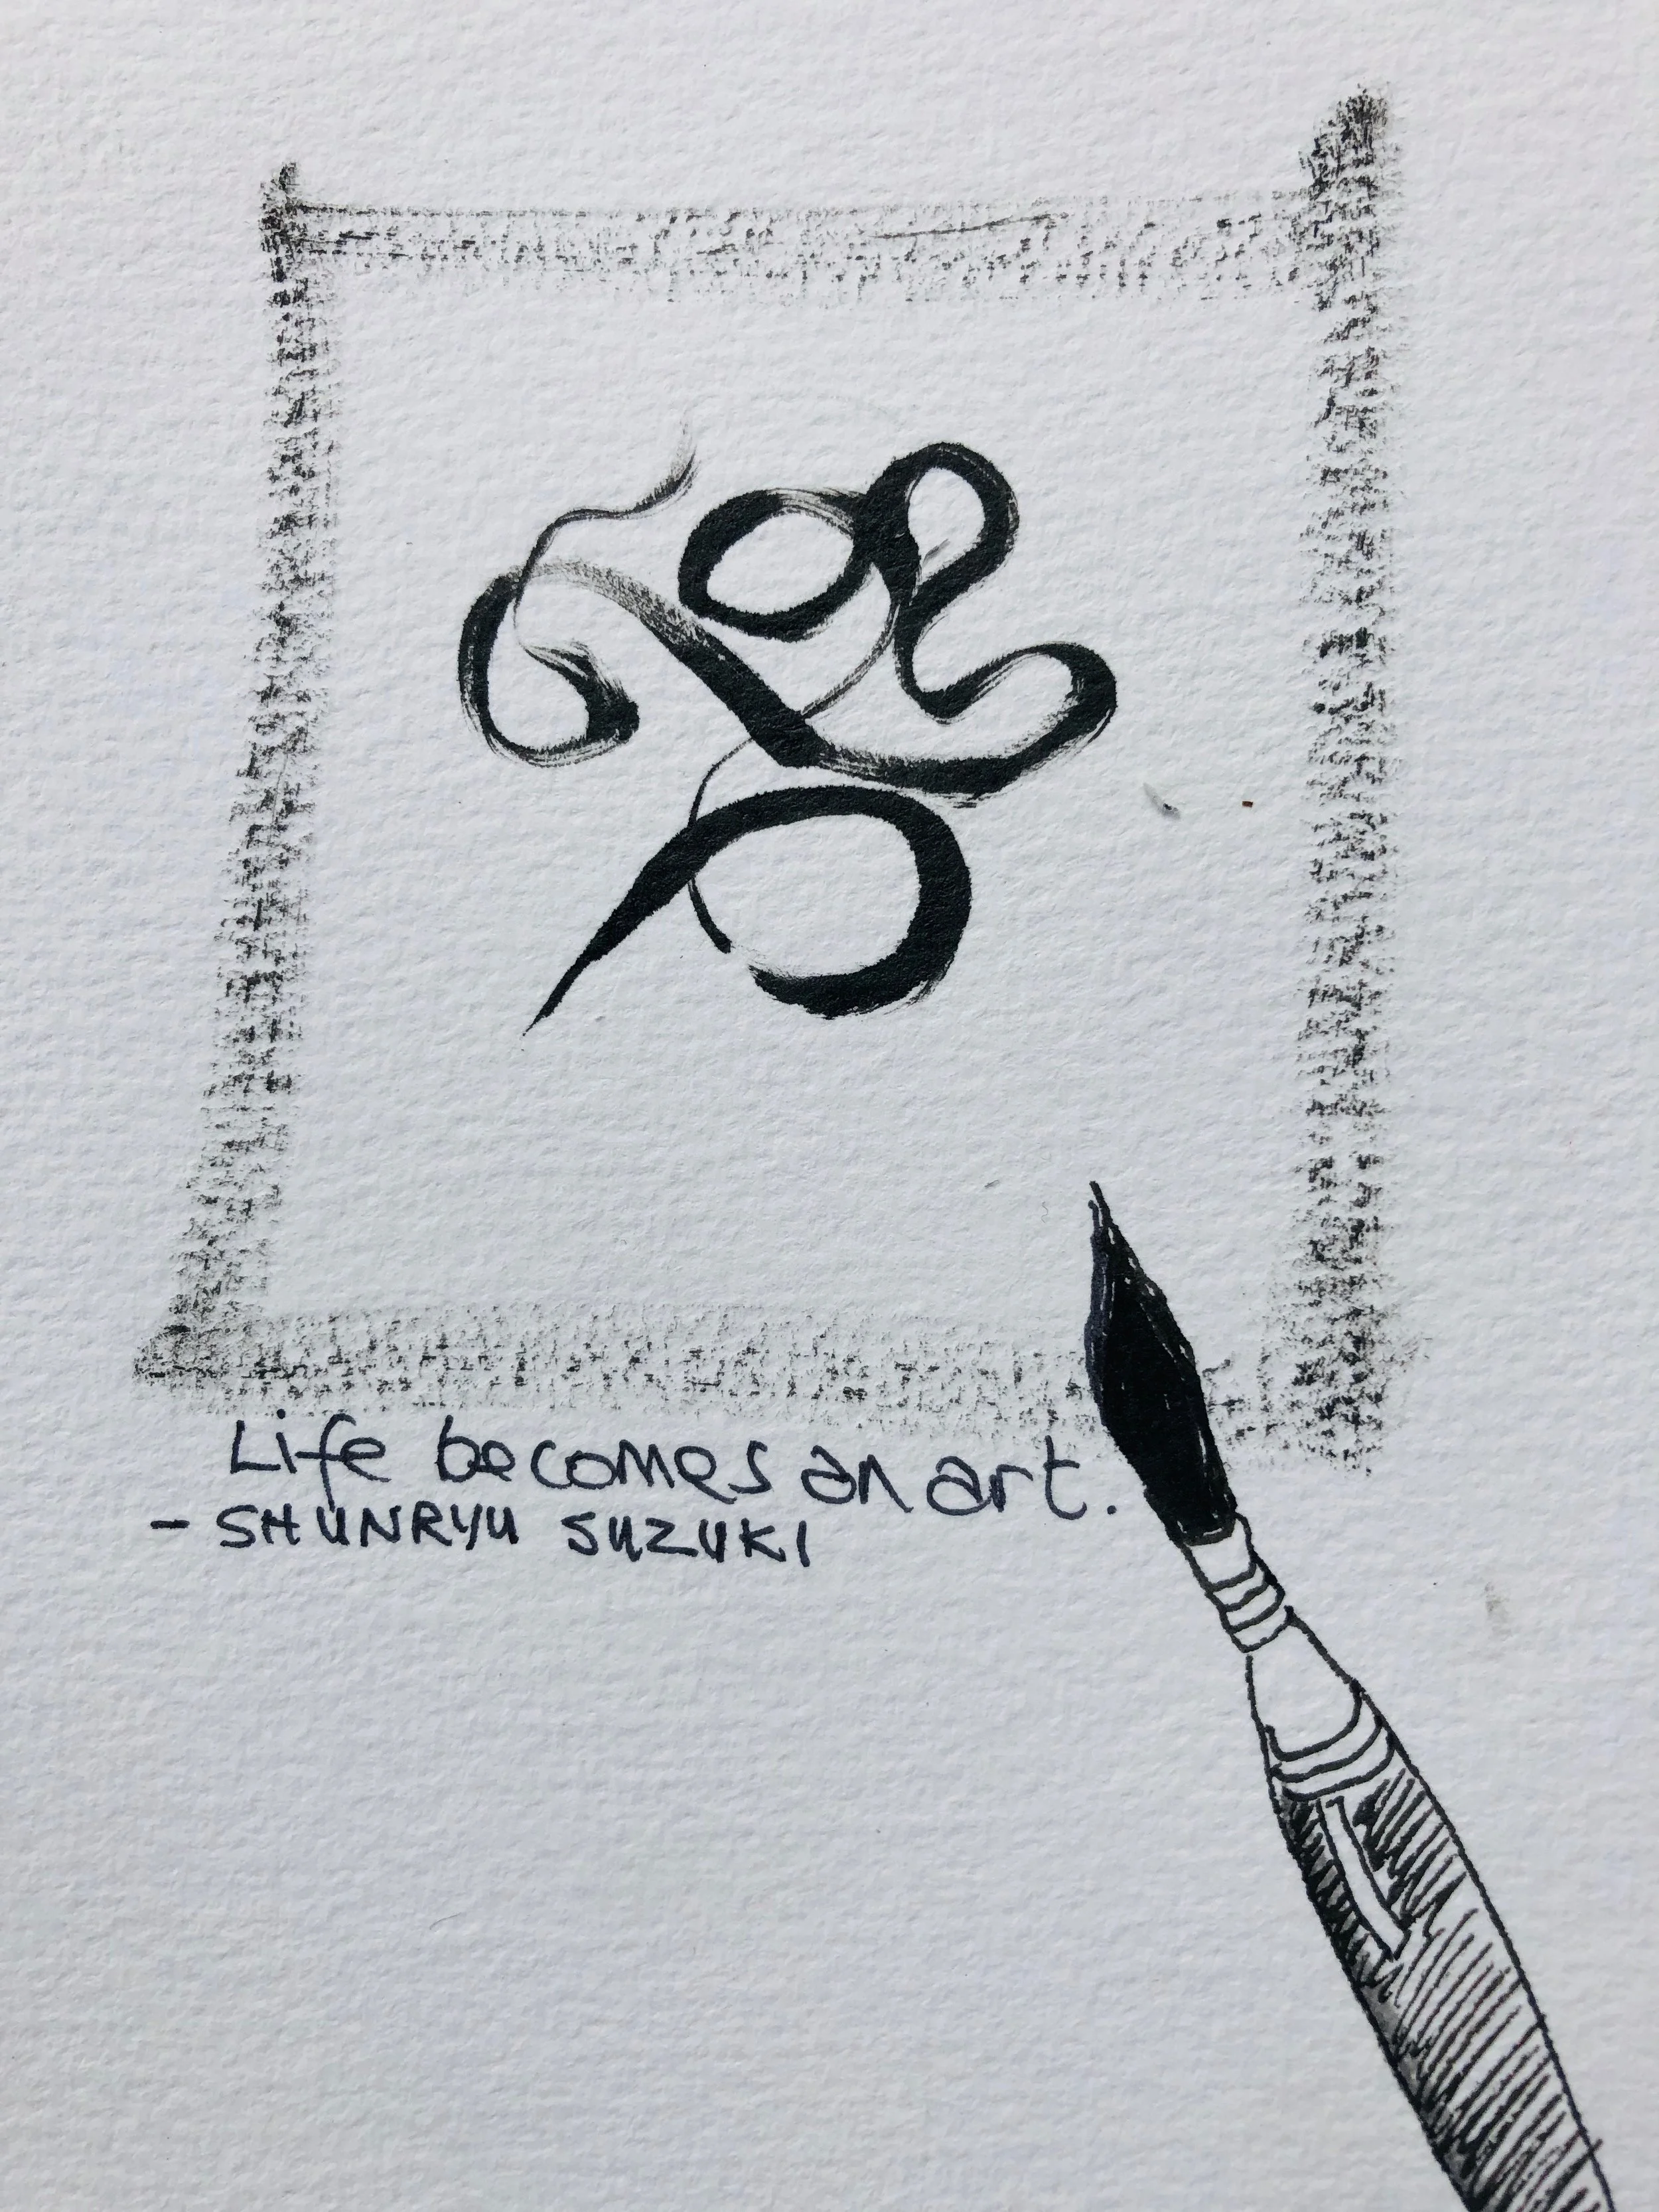 Life becomes an art.
- SHUNRYU SUZUKI